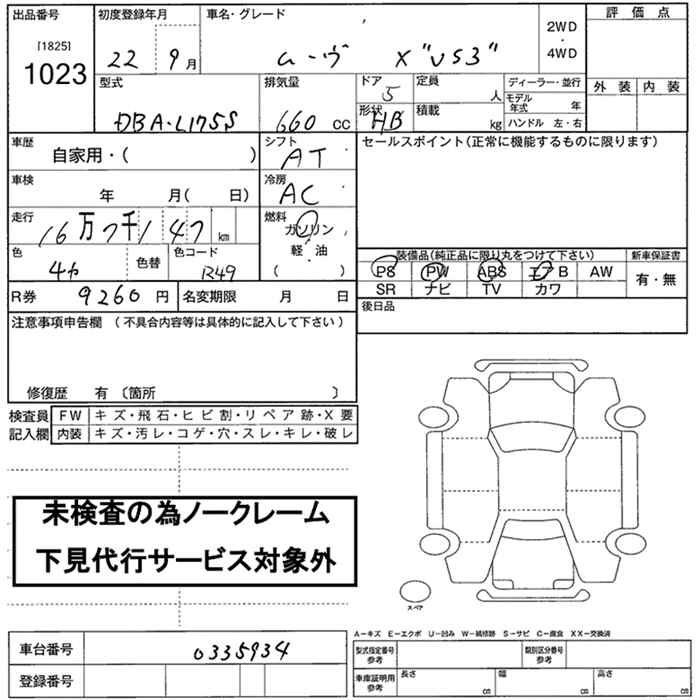 出品番号 初度登録年月 車名・グレード 2WD ・ 4WD 評価点
[1825]
1023 22 9月 ムーヴ X "VS3"
型式 排気量 ドア 定員 ディーラー・並行 外装 内装
5 人 モデル年式 年
DBA・L175S 660 cc 形状 HB 積載 kg ハンドル 左・右
車歴 シフト セールスポイント(正常に機能するものに限ります)
自家用・( ) AT
車検 冷房
年 月( 日) AC
走行 燃料
16万7千147km ガソリン
軽・油
( )
色 色替 色コード 装備品(純正品に限り丸をつけて下さい) 新車保証書
1349 PS PW ABS エアB AW 有・無
SR ナビ TV カワ
R券 9260円 名変期限 月 日 後日品
注意事項申告欄 (不具合内容等は具体的に記入して下さい)
修復歴 有 〔箇所 〕
検査員 FW キズ・飛石・ヒビ割・リペア跡・X要
記入欄 内装 キズ・汚レ・コゲ・穴・スレ・キレ・破レ
未検査の為ノークレーム
下見代行サービス対象外
スペア
A−キズ E−エクボ U−凹み W−補修跡 S−サビ C−腐食 XX−交換済
車台番号 0335934 型式指定番号 参考 類別区分番号 参考
登録番号 車庫証明用 参考 長さ 幅 高さ